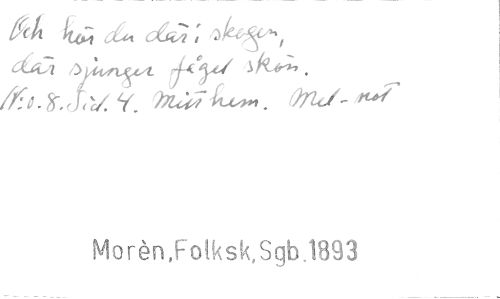 Och hör du där i skogen,
där sjunger fågel skön.
N:o. 8. Sid. 4. Mitt hem. Mel-not
Morèn,Folksk,Sgb.1893